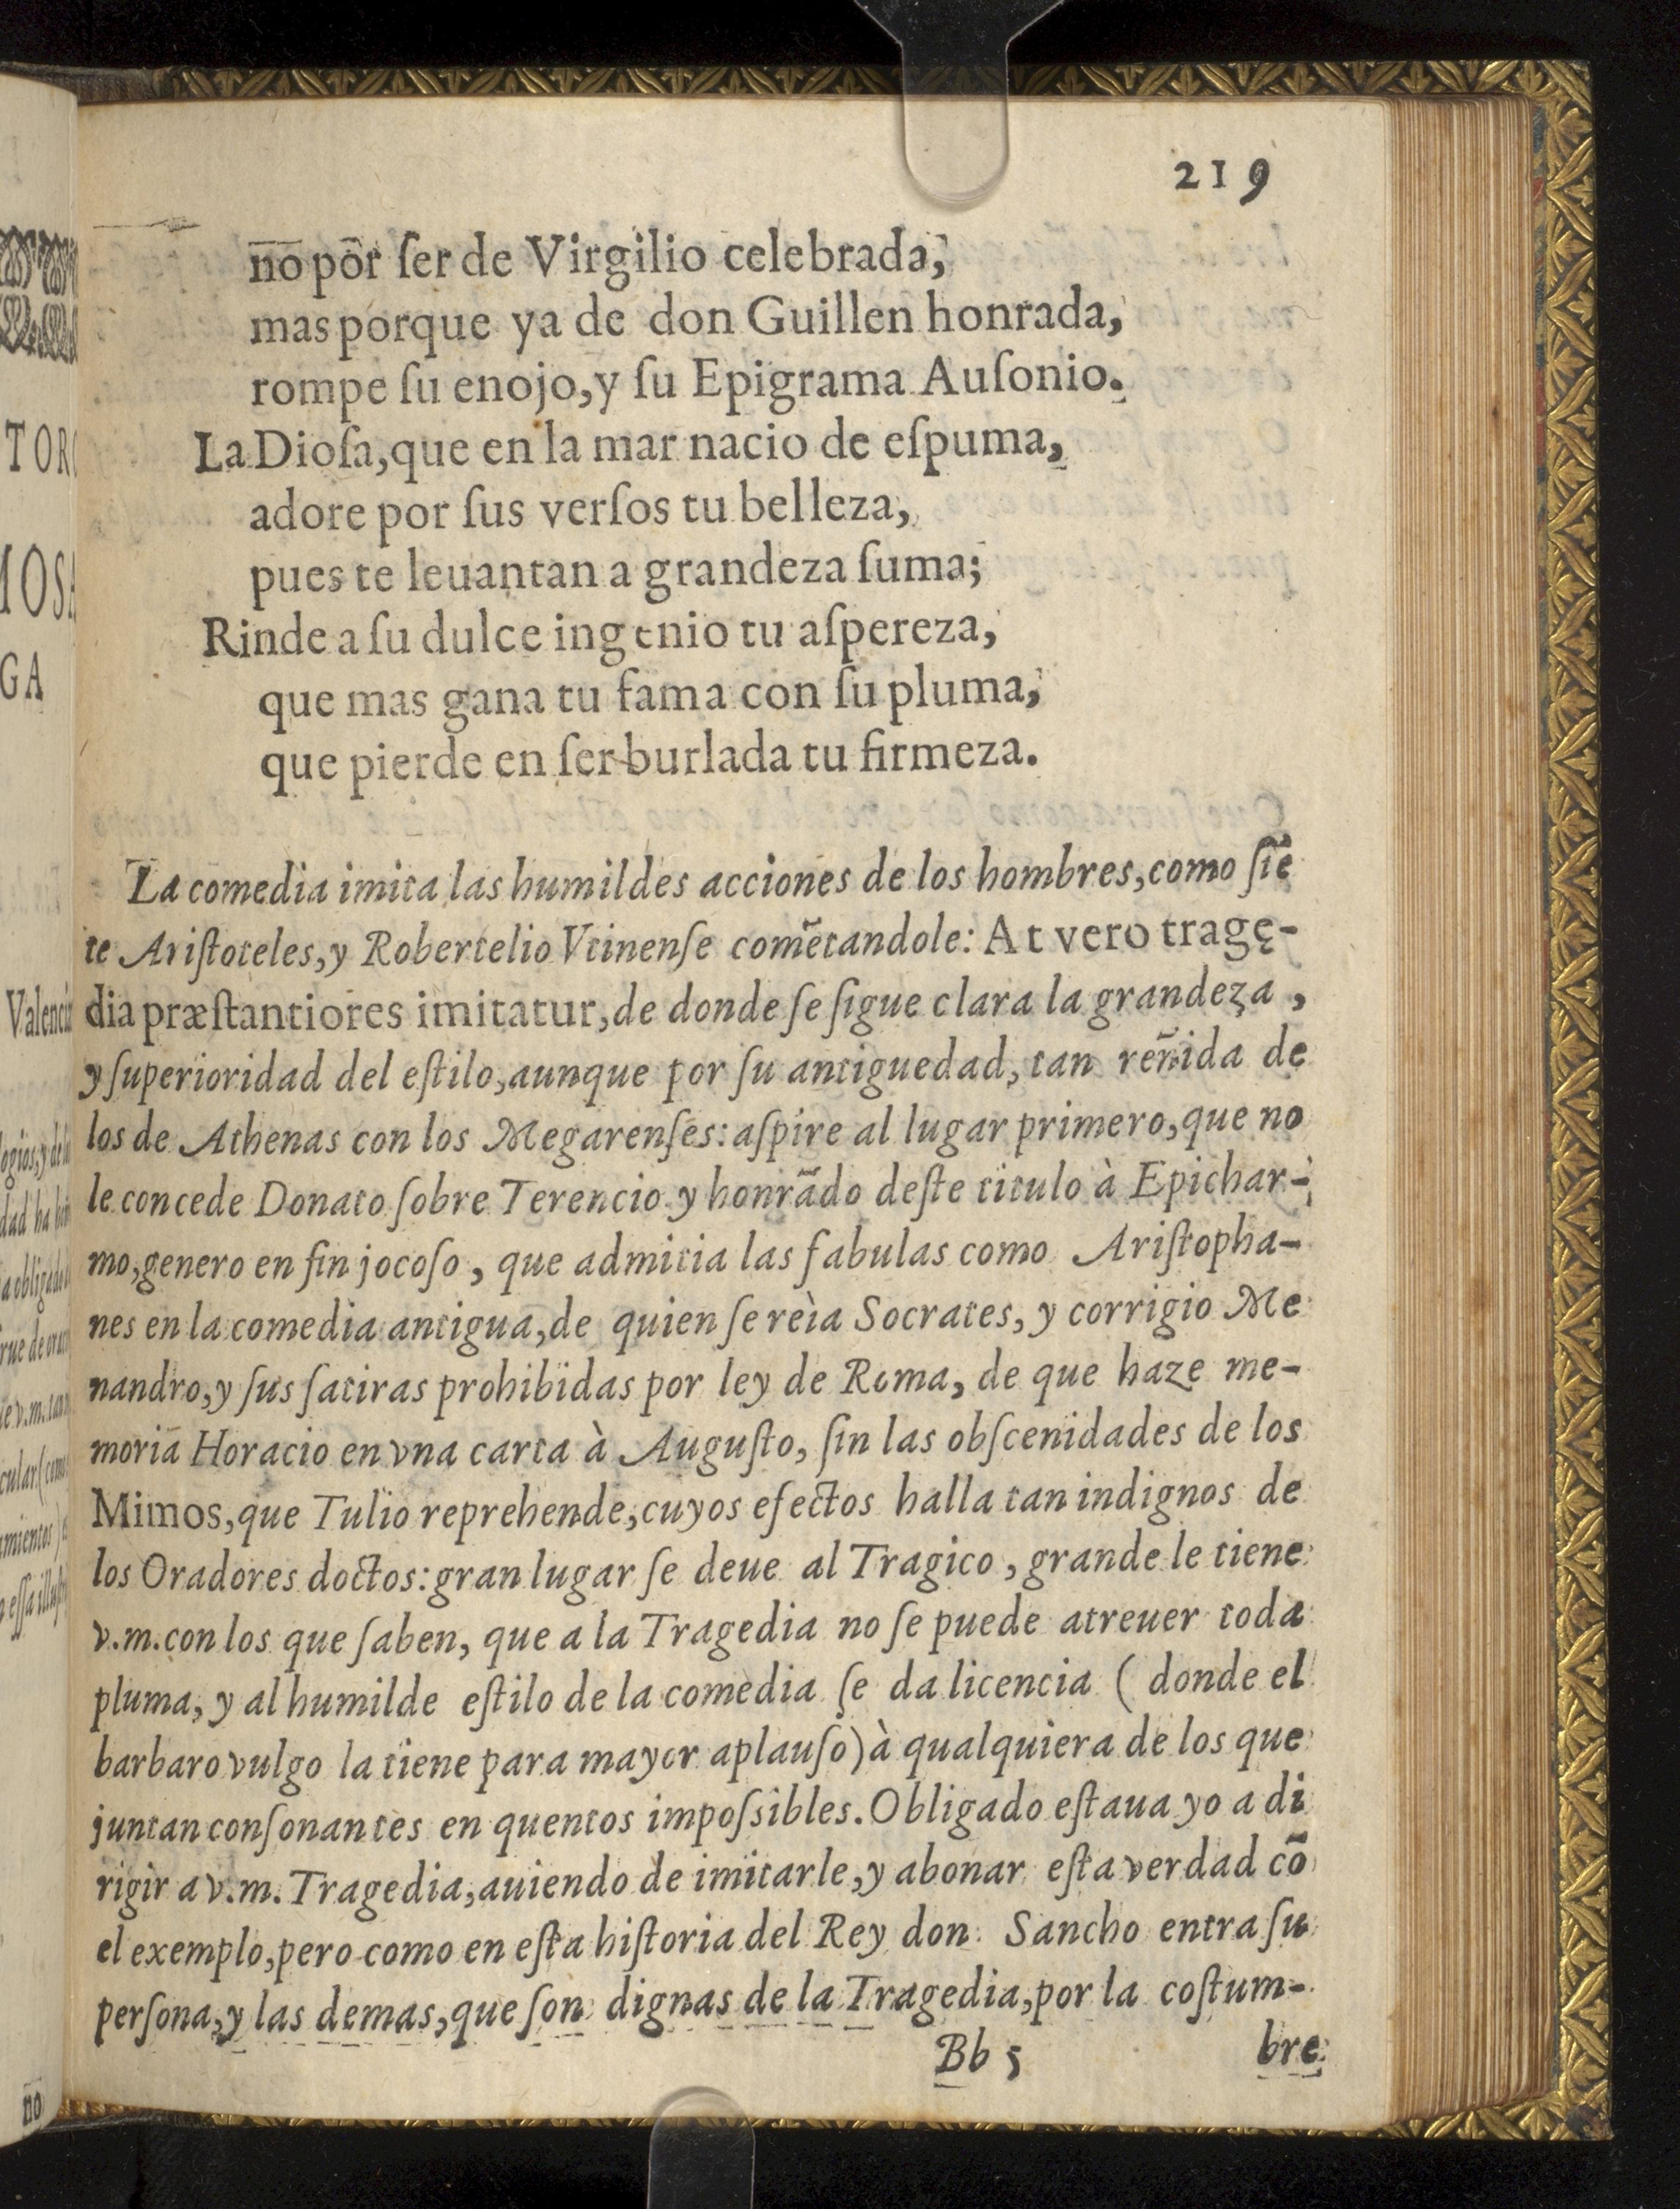 219
no por ſer de Virgilio celebrada,
mas porque ya de don Guillen honrada,
rompe ſu enojo, y ſu Epigrama Auſonio.
La Dioſa, que en la mar nacio de eſpuma,
adore por ſus verſos tu belleza,
pues te leuantan a grandeza ſuma;
Rinde a ſu dulce ingenio tu aſpereza,
que mas gana tu fama con ſu pluma,
que pierde en ſer burlada tu firmeza.
La comedia imita las humildes acciones de los hombres, como ſiẽ
te Ariſtoteles, y Robertelio Vtinenſe comẽtandole: At vero tragę-
dia præſtantiores imitatur, de donde ſe ſigue clara la grandeza,
y ſuperioridad del eſtilo, aunque por ſu antiguedad, tan reñida de
los de Athenas con los Megarenſes: aſpire al lugar primero, que no
le concede Donato ſobre Terencio y honrãdo deſte titulo à Epichar-
mo, genero en fin jocoſo, que admitia las fabulas como Ariſtopha-
nes en la comedia antigua, de quien ſe reìa Socrates, y corrigio Me
nandro, y ſus ſatiras prohibidas por ley de Roma, de que haze me-
moria Horacio en vna carta à Auguſto, ſin las obſcenidades de los
Mimos, que Tulio reprehende, cuyos efectos halla tan indignos de
los Oradores doctos: gran lugar ſe deue al Tragico, grande le tiene
v.m. con los que ſaben, que a la Tragedia no ſe puede atreuer toda
pluma, y al humilde eſtilo de la comedia ſe da licencia ( donde el
barbaro vulgo la tiene para mayor aplauſo) à qualquiera de los que
juntan conſonantes en quentos impoſsibles. Obligado eſtaua yo a di
rigir a v.m. Tragedia, auiendo de imitarle, y abonar eſta verdad cõ
el exemplo, pero como en eſta hiſtoria del Rey don Sancho entra ſu
perſona, y las demas, que ſon dignas de la Tragedia, por la coſtum-
Bb 5 bre